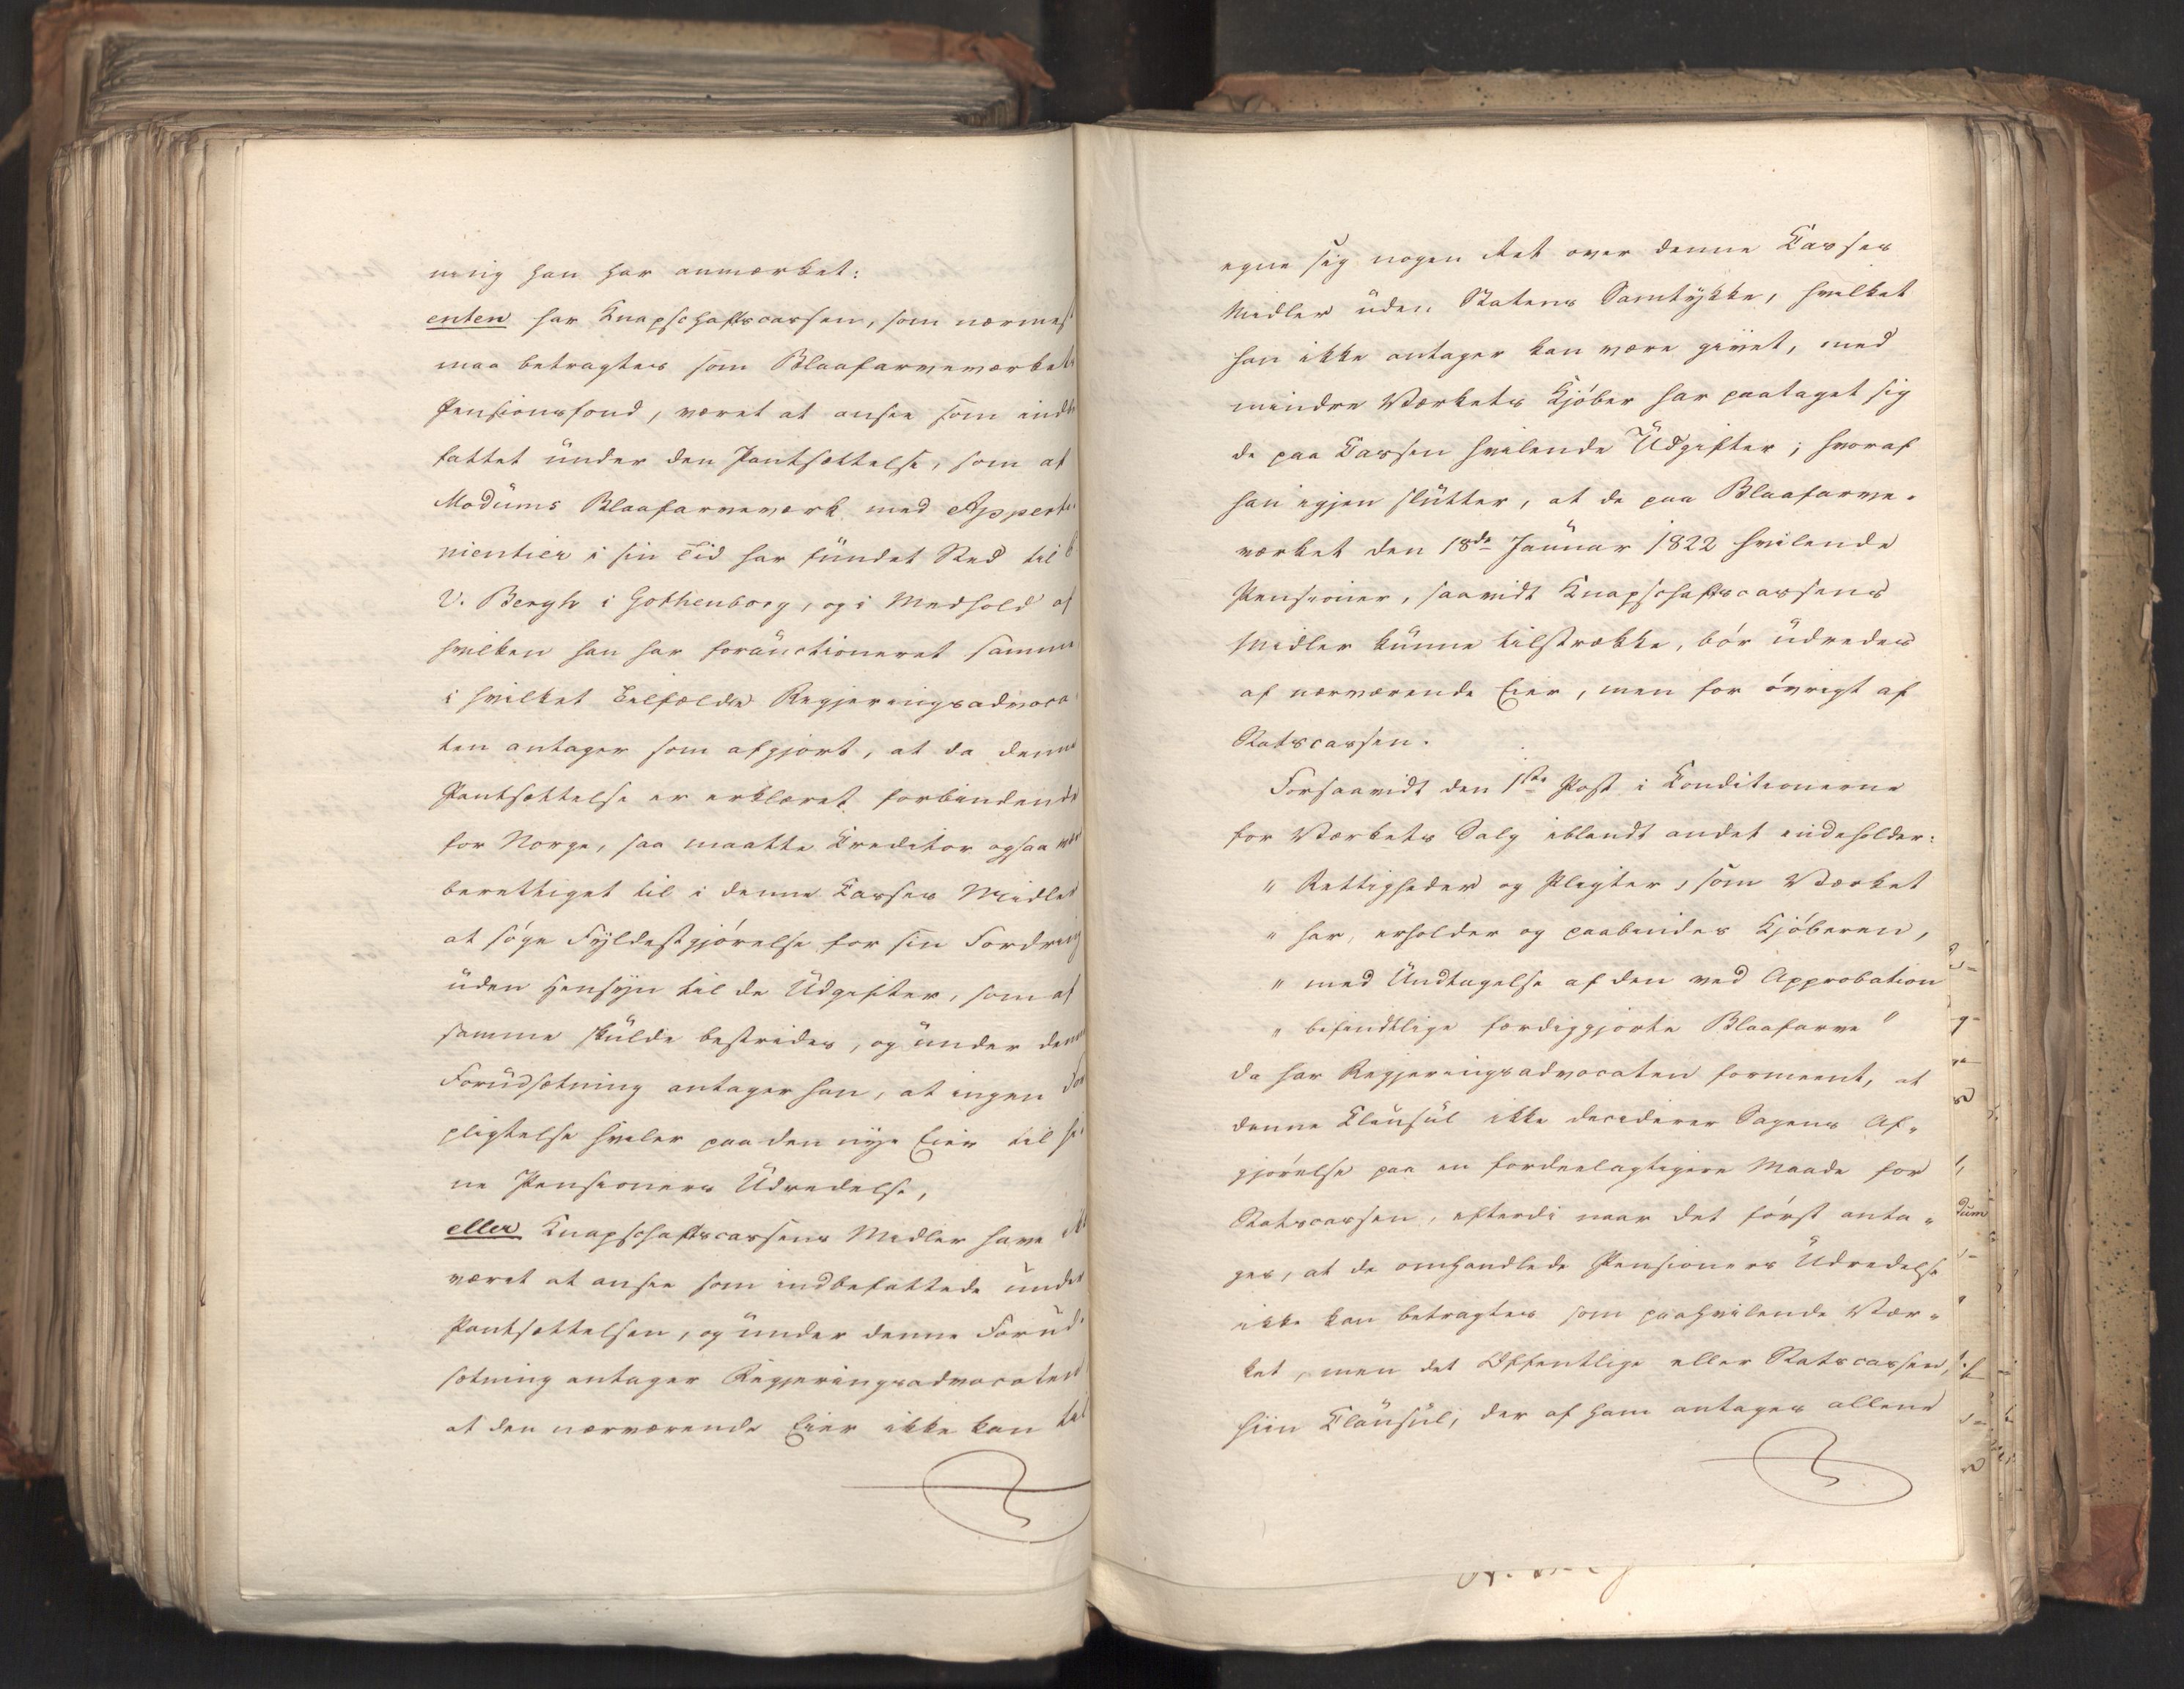 ning han har anmærket:
enten har Knapschaftscassen, som nærmest
maa betragtes som Blaafarveværkets
Pensionsfond, været at ansee som indbe
fattet under den Pantsættelse, som af
Modums Blaafarveværk med Apperti
nientier i sin Tid har fundet Sted til
V. Bergh i Gothenborg, og i Medhold af
hvilken han har forauctioneret samme
i hvilket Tilfælde Regjeringsadvoca
ten antager som afgjort, at da denne
Pantsættelse er erklæret forbindende
for Norge, saa maatte Creditor ogsaa være
berettiget til i denne Casses Midler
at søge Fyldestgjørelse for sin Fordring
uden Hensyn til de Udgifter, som af
samme skulde bestrides, og under denne
Forudsætning antager han, at ingen For
pligtelse hviler paa den nye Eier til hi
ne Pensioners Udredelse,
eller Knapschaftscassens Midler have ikke
været at ansee som indbefattede under
Pantsættelsen, og under denne Forud
sætning antager Regjeringsadvocaten
at den nærværende Eier ikke kan til
egne sig nogen Ret over denne Casses
Midler uden Statens Samtykke, hvilket
han ikke antager kan være givet, med
mindre Værkets Kjøber har paataget sig
de paa Cassen hvilende Udgifter; hvoraf
han igjen slutter, at de paa Blaafarve-
værket den 18de Januar 1822 hvilende
Pensioner, saavidt Knapschaftscassens
Midler kunne tilstrække, bør udredes
af nærværende Eier, men for øvrigt af
Statscassen.
Forsaavidt den 1ste Post i Conditionerne
for Værkets Salg iblandt andet indeholder:
" Rettigheder og Pligter, som Værket
" har, erholder og paabindes Kjøberen,
" med Undtagelse af den ved Approbation
" befindtlige færdiggjorte Blaafarve"
da har Regjeringsadvocaten formeent, at
denne Clausul ikke deciderer Sagens Af-
gjørelse paa en fordeelagtigere Maade for
Statscassen, efterdi naar det først anta-
ges, at de omhandlede Pensioners Udredelse
ikke kan betragtes som paahvilende Vær-
ket, men det Offentlige eller Statscassen,
hiin Clausul, der af ham antages allene